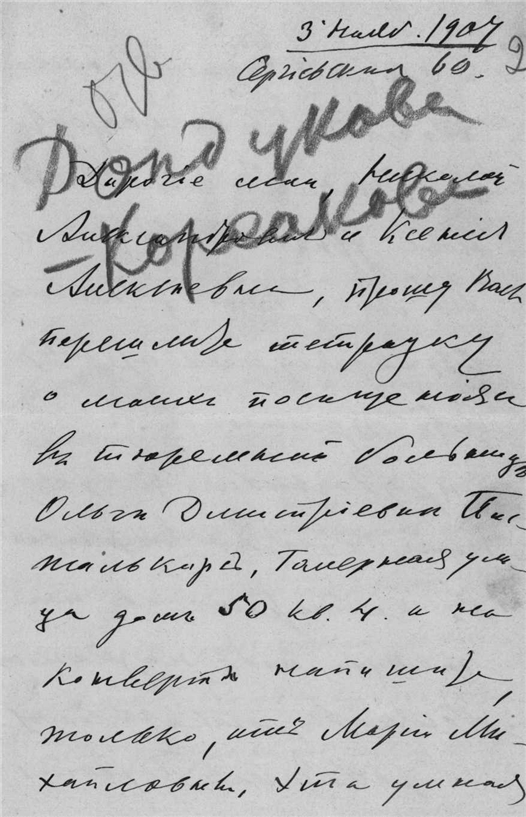 3 нояб. 1907
2
Сергіевская 60.
Дондукова
-Корсакова
Дорогіе мои, Николай
Александровичъ и Ксенія
Алексѣевна, прошу Васъ
перешлите тетрадку
о моихъ посещеніяхъ
въ тюремной больницѣ
Ольгѣ Дмитріевнѣ
Галерная ули-
ца домъ 50 кв. 4. и на
конвертѣ напишите,
только, отъ Маріи Ми-
хайловны, Эта умная